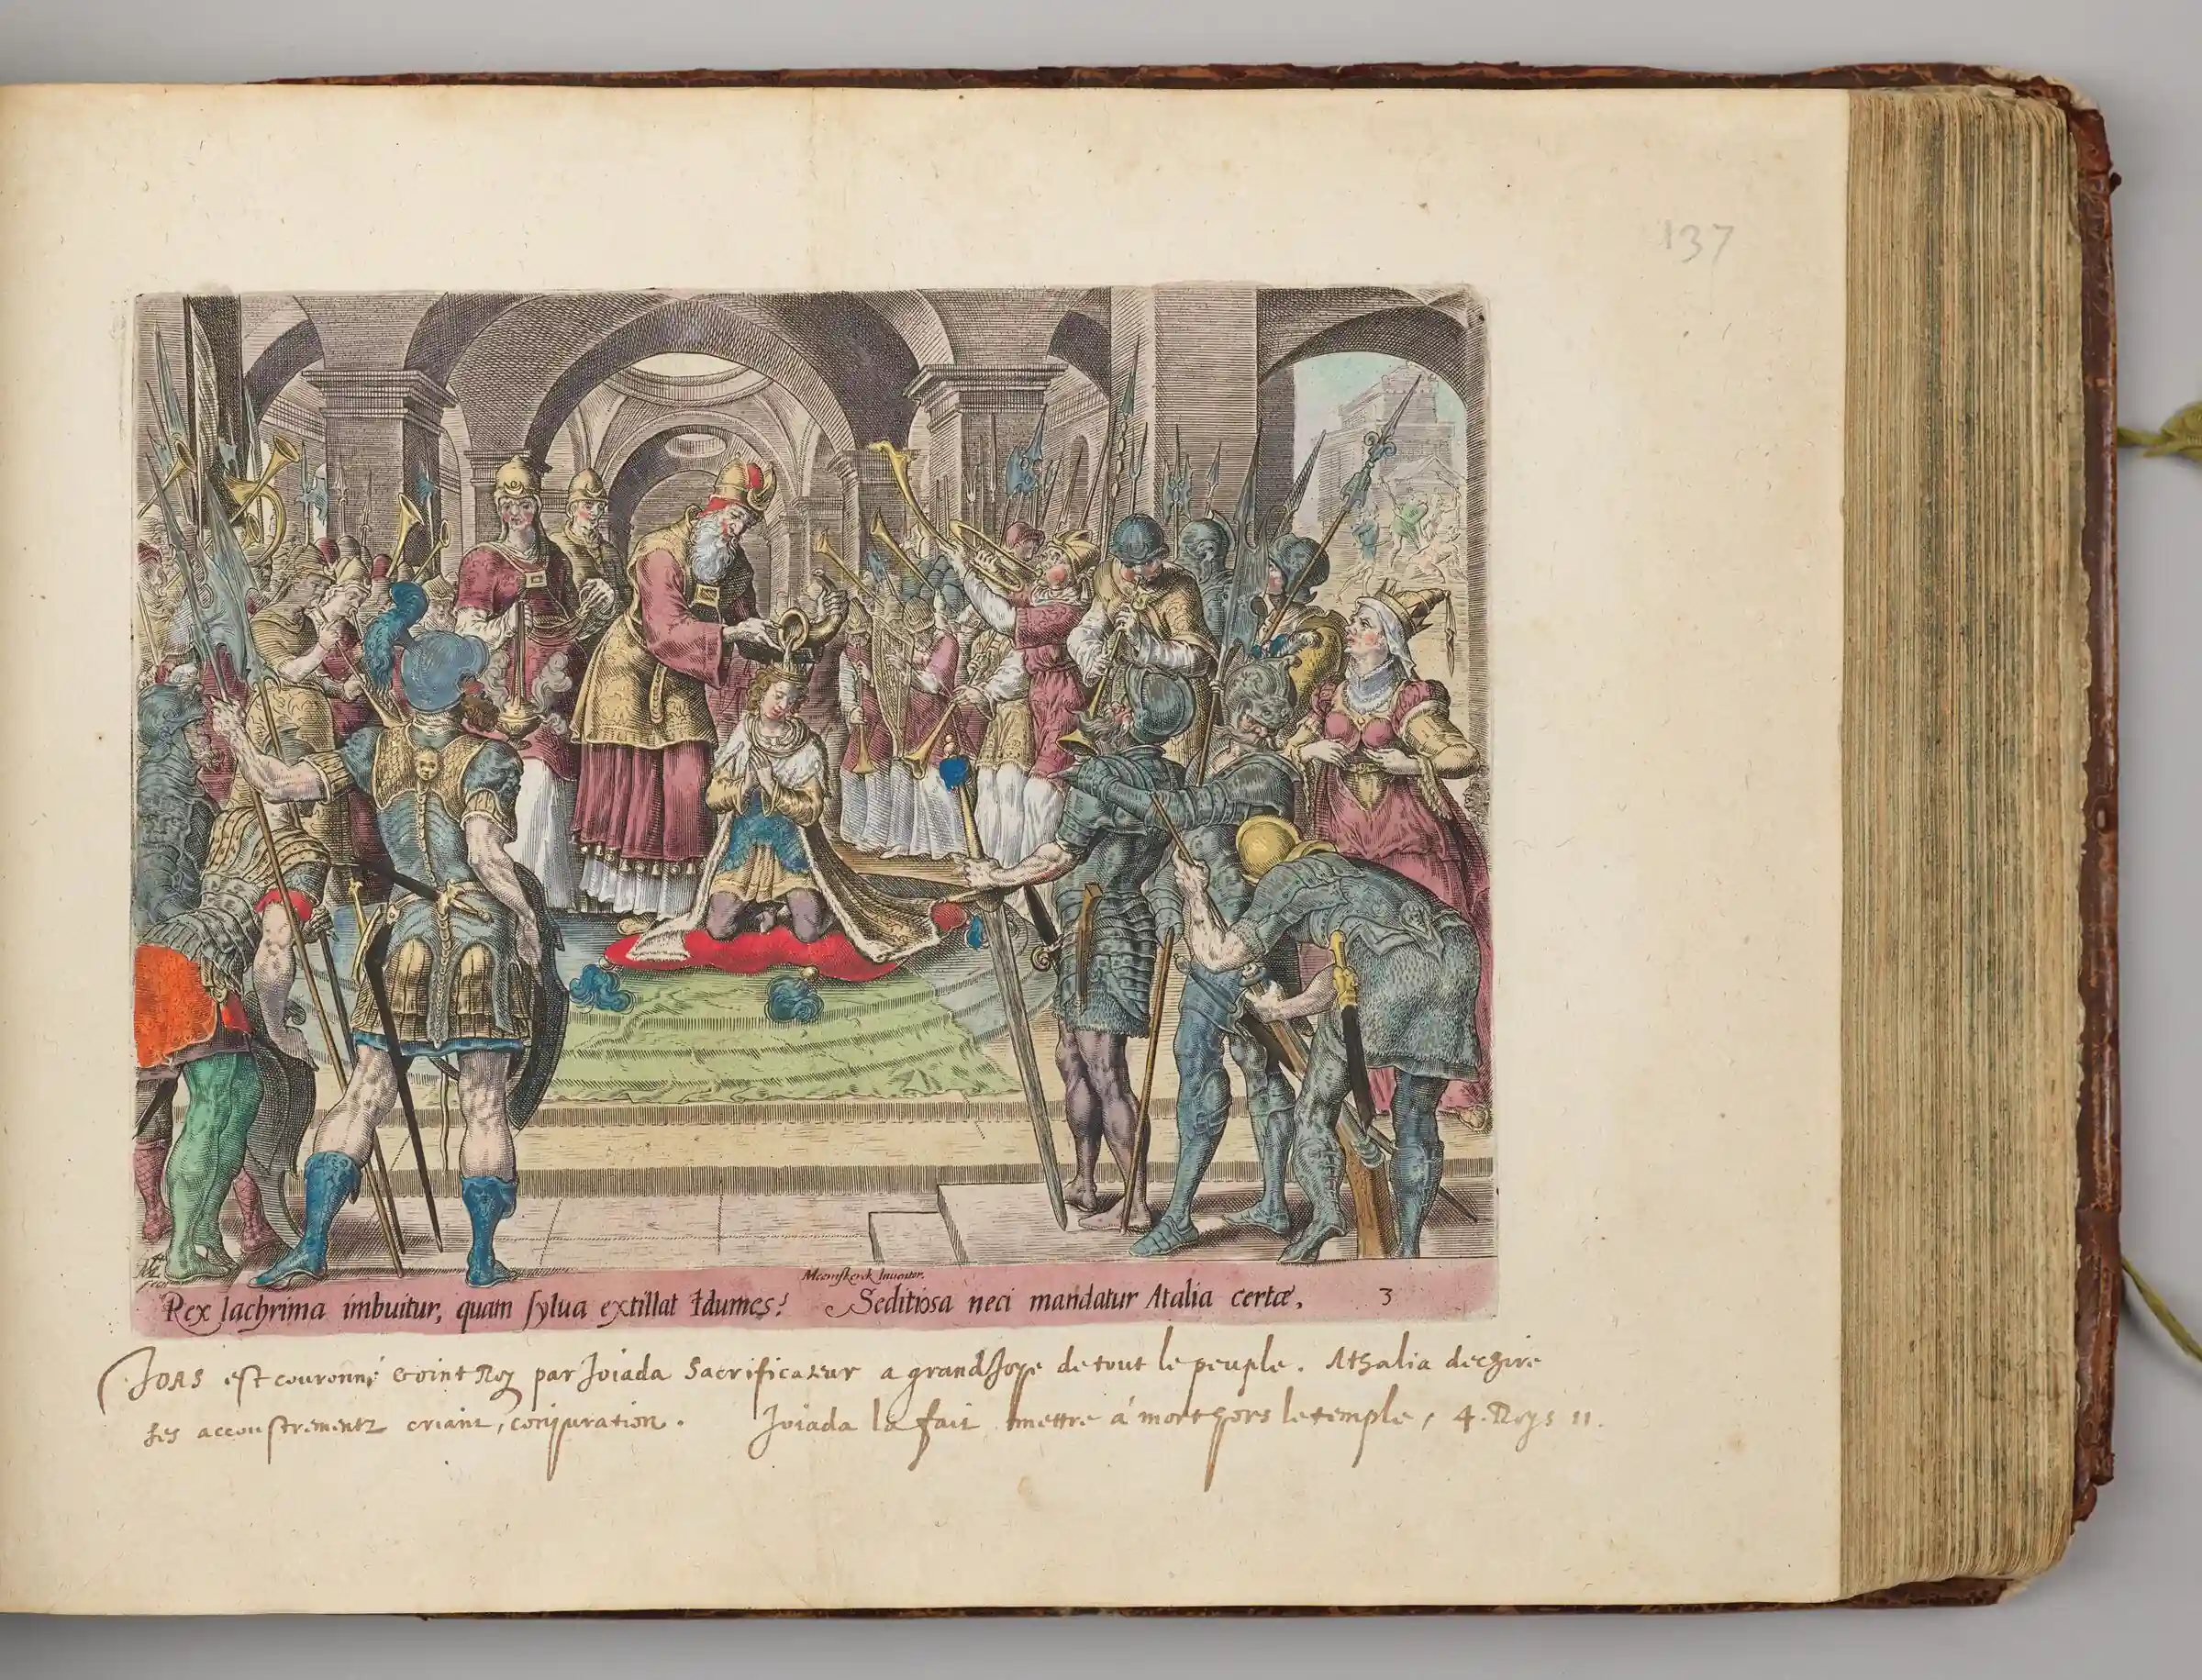 137
Meemskerck Inventor.
Rex lachrima imbuitur, quam sylua extillat Idumes: Seditiosa neci mandatur Atalia certæ. 3
Joas est couronné & oint Roy par Joiada Sacrificateur a grand Joye de tout le peuple. Athalia deczire
ses accoustrementz criant, conjuration. Joiada la fait mettre à mort hors le temple, 4. Roys 11.